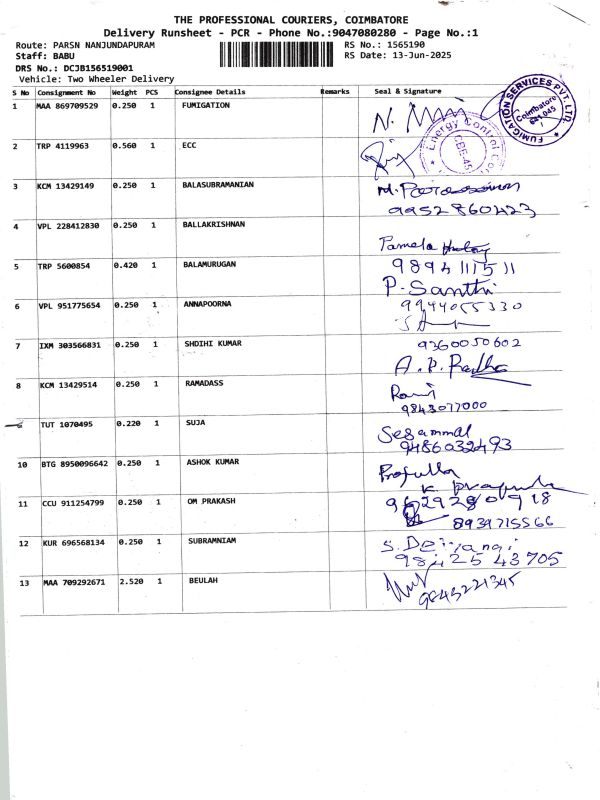 THE PROFESSIONAL COURIERS, COIMBATORE
Delivery Runsheet - PCR - Phone No.:9047080280 - Page No.:1
Route: PARSN NANJUNDAPURAM RS No.: 1565190
Staff: BABU RS Date: 13-Jun-2025
DRS No.: DCJB156519001
Vehicle: Two Wheeler Delivery
S No Consignment No Weight PCS Consignee Details Remarks Seal & Signature
1 MAA 869709529 0.250 1 FUMIGATION
FUMIGATION SERVICES PVT. LTD.
Coimbatore
641 045
2 TRP 4119963 0.560 1 ECC
Energy Control
3 KCM 13429149 0.250 1 BALASUBRAMANIAN
9952860423
4 VPL 228412830 0.250 1 BALLAKRISHNAN
Pamela
5 TRP 5600854 0.420 1 BALAMURUGAN
9894111511
P. Santhi
6 VPL 951775654 0.250 1 ANNAPOORNA
9944055330
7 IXM 303566831 0.250 1 SHDIHI KUMAR
9360050602
A.P. Radha
8 KCM 13429514 0.250 1 RAMADASS
Rani
9843077000
TUT 1070495 0.220 1 SUJA
9486032493
10 BTG 8950096642 0.250 1 ASHOK KUMAR
Prafulla
11 CCU 911254799 0.250 1 OM PRAKASH
8939715566
12 KUR 696568134 0.250 1 SUBRAMNIAM
13 MAA 709292671 2.520 1 BEULAH